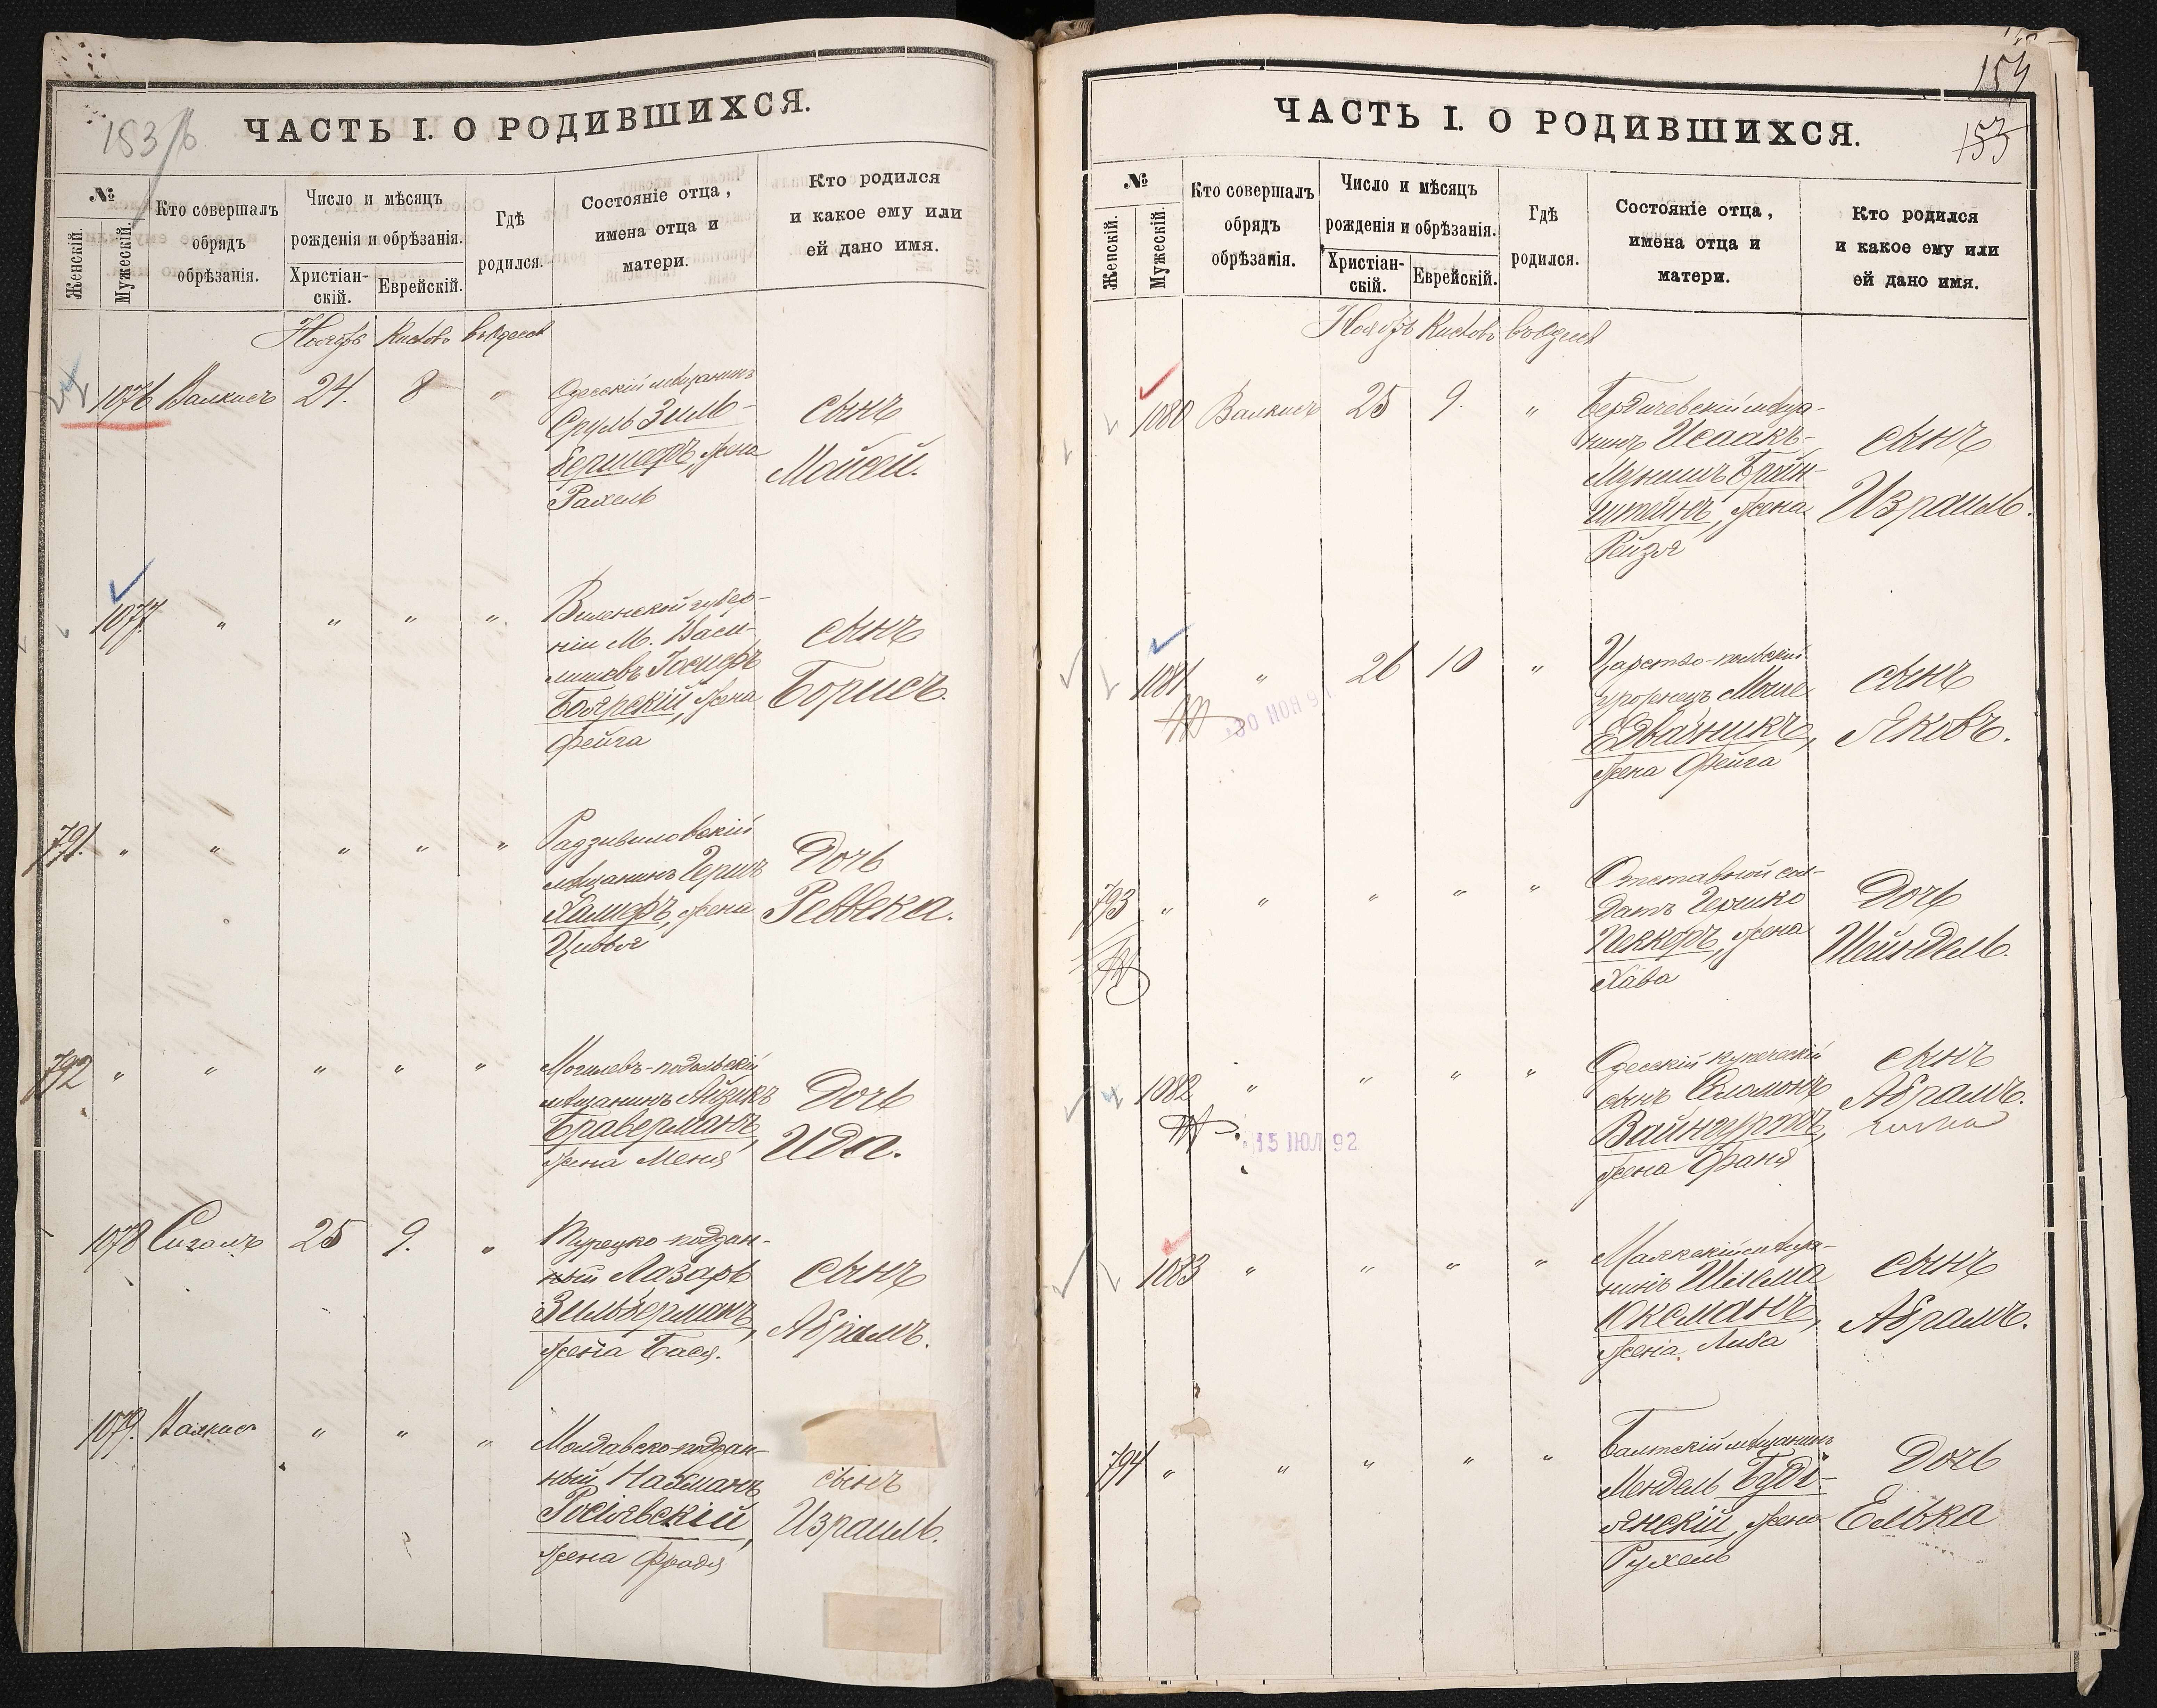 153/б
ЧАСТЬ I. О РОДИВШИХСЯ.
№
Женскій.
Мужескій.
Кто совершалъ
обрядъ
обрѣзанія.
Число и мѣсяцъ
рожденія и обрѣзанія.
Христіан-
скій.
Еврейскій.
Гдѣ
родился.
Состояніе отца,
имена отца и
матери.
Кто родился
и какое ему или
ей дано имя.
Ноябрь Кислевъ въ Одессѣ
1076 Валкисъ 24. 8 "
Одесскій мѣщанинъ
Сруль Зиль-
бершеръ, жена
Рахель
сынъ
Мойсей.
1077. " " " "
Виленской губер-
ніи М. Васи-
лишекъ Іосифъ
Боярскій, жена
Фейга
сынъ
Борисъ.
791. " " " " "
Радзивиловскій
мѣщанинъ Гершъ
Халиферъ, жена
Цивья
Дочь
Реввека.
792 " " " " "
Могилевъ-подольскій
мѣщанинъ Айзикъ
Браверманъ,
жена Меня
Дочь
Ида.
1078 Сигалъ 25 9. "
Турецко-поддан-
ный Лазарь
Зильберманъ,
жена Бася.
сынъ
Абрамъ.
1079. Валкисъ " " "
Молдавско-поддан-
ный Нахманъ
Росіявскій,
жена Фрадя
сынъ
Израиль.
154
153
ЧАСТЬ I. О РОДИВШИХСЯ.
№
Женскій.
Мужескій.
Кто совершалъ
обрядъ
обрѣзанія.
Число и мѣсяцъ
рожденія и обрѣзанія.
Христіан-
скій.
Еврейскій.
Гдѣ
родился.
Состояніе отца,
имена отца и
матери.
Кто родился
и какое ему или
ей дано имя.
Ноябрь Кислевъ въ Одессѣ
1080 Валкисъ 25 9. "
Бердичевскій мѣща-
нинъ Исаакъ-
Мунишъ Бройн-
штейнъ, жена
Рейзя
сынъ
Израиль.
1081 " 26 10 "
30 НОЯ 91
Царство-польскій
уроженецъ Моше
Едвабникъ,
жена Фейга
сынъ
Яковъ.
793 " " " " "
Отставной сол-
датъ Гершко
Пеккеръ, жена
Хава
Дочь
Шейндель.
1082 " " " "
15 ІЮЛ 92
Одесскій купеческій
сынъ Соломонъ
Вайнгуртъ,
жена Фаня
сынъ
Абрамъ.
1083 " " " "
Маякскій мѣща-
нинъ Шлема
Оксманъ,
жена Либа
сынъ
Абрамъ.
794 " " " " "
Балтскій мѣщанинъ
Мендель Буди-
янскій, жена
Рухель
Дочь
Елька